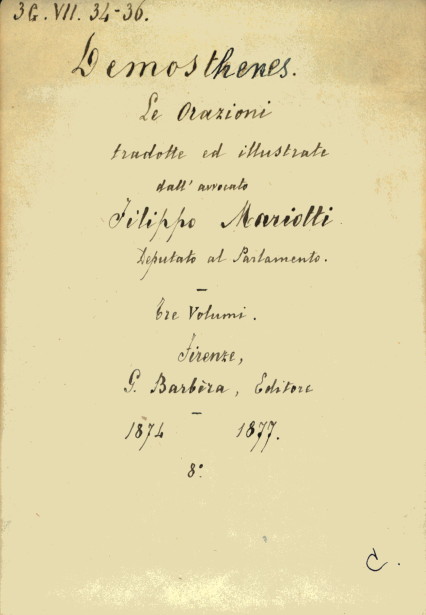 3G. VII. 34-36.
Demosthenes.
Le Orazioni
tradotte ed illustrate
dall' avvocato
Filippo Mariotti
Deputato al Parlamento.
—
Tre Volumi.
Firenze,
G. Barbèra, Editore
—
1874 1877.
8°
C.